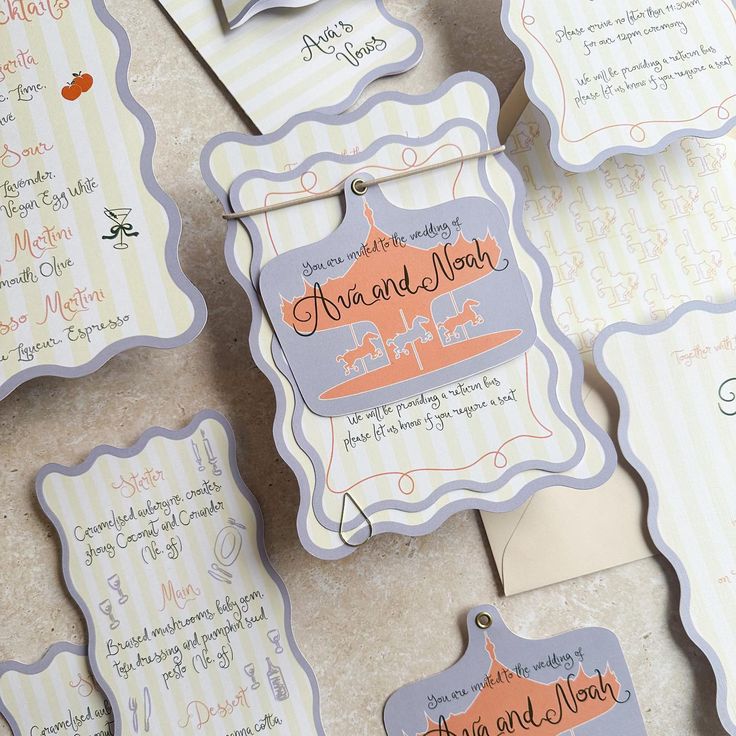 Cocktails
Lime,
Sour
Lavender,
Vegan Egg White
Martini
Olive
Martini
Liqueur, Espresso
Ava's
Vows
Please arrive no later than 11:30am
for our 12pm ceremony
We will be providing a return bus
please let us know if you require a seat
You are invited to the wedding of
Ava and Noah
We will be providing a return bus
please let us know if you require a seat
Together with
Starter
Caramelised aubergine, croutes,
zhoug, Coconut and Coriander
(Ve, gf)
Main
Braised mushrooms, baby gem,
tofu dressing and pumpkin seed
pesto (Ve, gf)
Dessert
You are invited to the wedding of
Ava and Noah
Caramelised